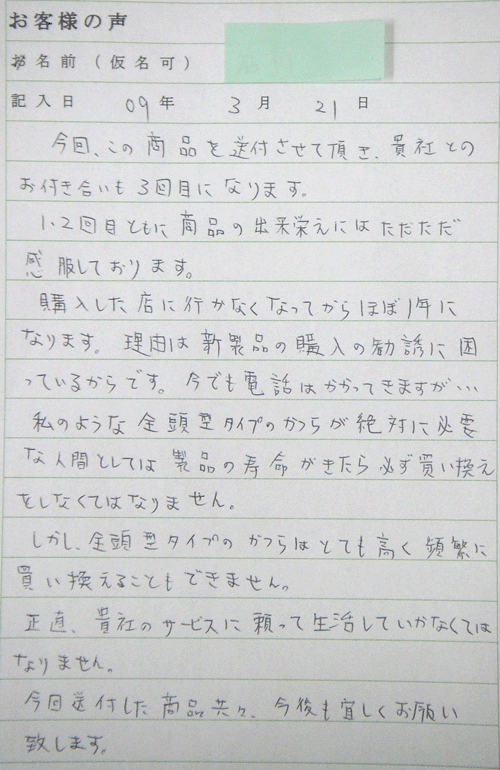 お客様の声
お名前(仮名可)
記入日 09年 3月 21日
今回、この商品を送付させて頂き、貴社との
お付き合いも3回目になります。
1・2回目ともに商品の出来栄えにはただただ
感服しております。
購入した店に行かなくなってからほぼ1年に
なります。理由は新製品の購入の勧誘に困
っているからです。今でも電話はかかってきますが…
私のような全頭型タイプのかつらが絶対に必要
な人間としては製品の寿命がきたら必ず買い換え
をしなくてはなりません。
しかし、全頭型タイプのかつらはとても高く頻繁に
買い換えることもできません。
正直、貴社のサービスに頼って生活していかなくては
なりません。
今回送付した商品共々、今後も宜しくお願い
致します。